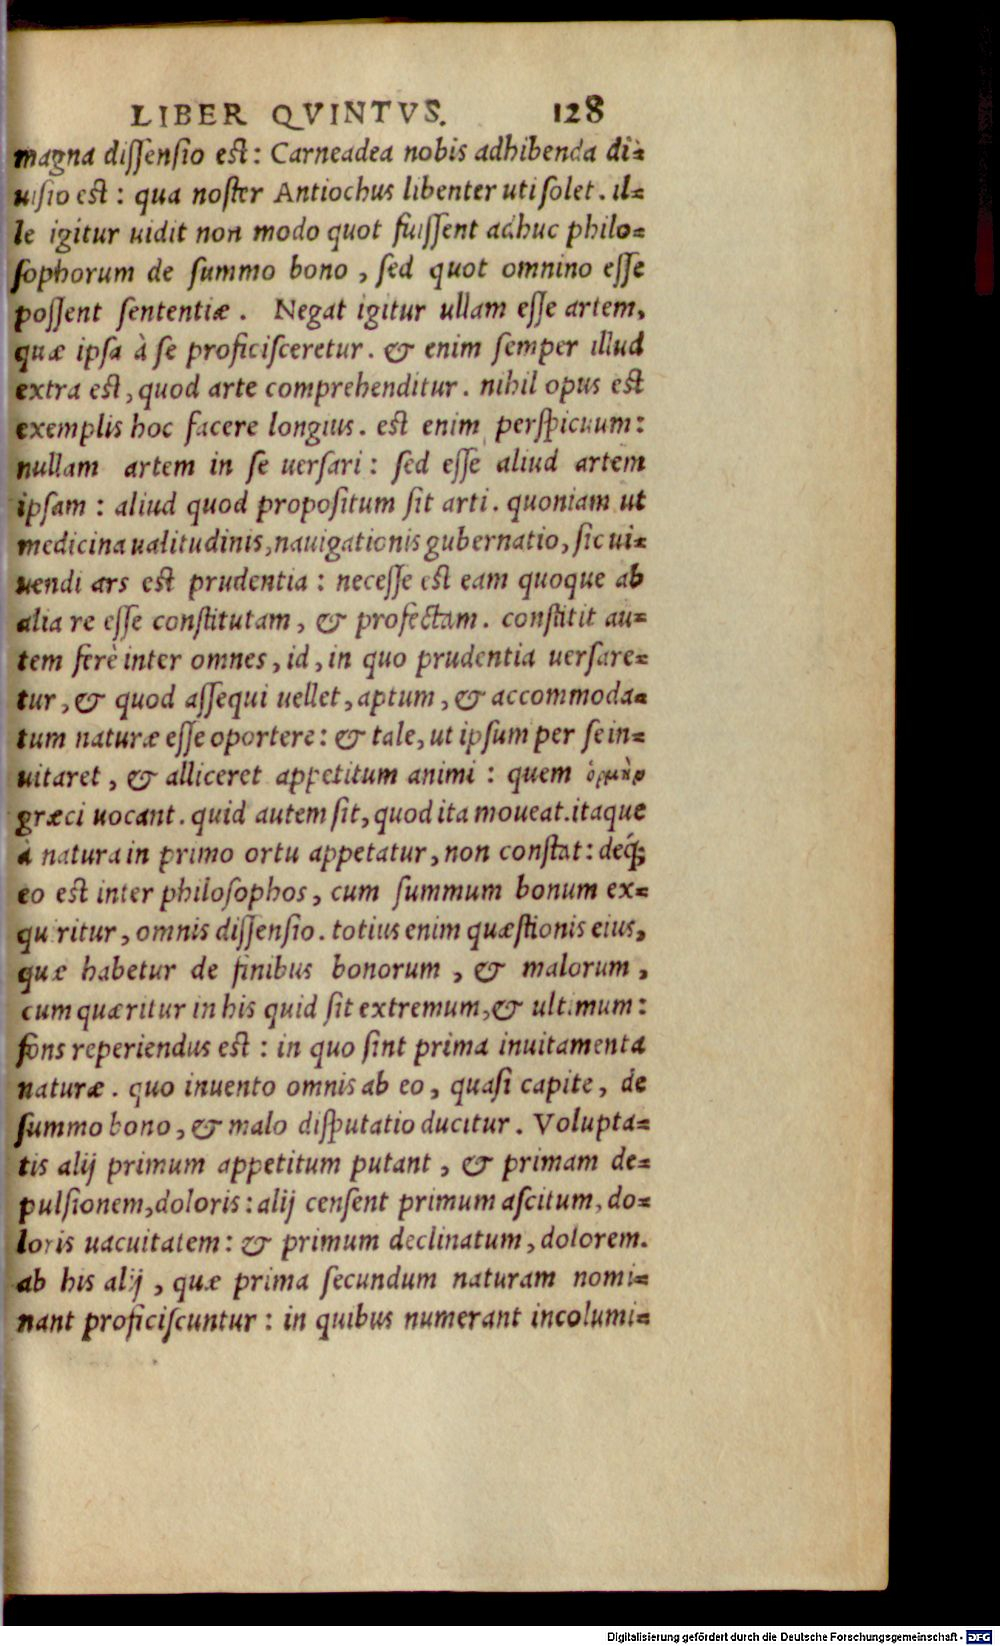 LIBER QVINTVS. 128
magna dissensio est: Carneadea nobis adhibenda di=
uisio est: qua noster Antiochus libenter uti solet. il=
le igitur uidit non modo quot fuissent adhuc philo=
sophorum de summo bono, sed quot omnino esse
possent sententiæ. Negat igitur ullam esse artem,
quæ ipsa à se proficisceretur. & enim semper illud
extra est, quod arte comprehenditur. nihil opus est
exemplis hoc facere longius. est enim perspicuum:
nullam artem in se uersari: sed esse aliud artem
ipsam: aliud quod propositum sit arti. quoniam ut
medicina ualitudinis, nauigationis gubernatio, sic ui=
uendi ars est prudentia: necesse est eam quoque ab
alia re esse constitutam, & profectam. constitit au=
tem ferè inter omnes, id, in quo prudentia uersare=
tur, & quod assequi uellet, aptum, & accommoda=
tum naturæ esse oportere: & tale, ut ipsum per se in=
uitaret, & alliceret appetitum animi: quem ὁρμὴν
græci uocant. quid autem sit, quod ita moueat. itaque
à natura in primo ortu appetatur, non constat: deq́;
eo est inter philosophos, cum summum bonum ex=
quiritur, omnis dissensio. totius enim quæstionis eius,
quæ habetur de finibus bonorum, & malorum,
cum quæritur in his quid sit extremum, & ultimum:
fons reperiendus est: in quo sint prima inuitamenta
naturæ. quo inuento omnis ab eo, quasi capite, de
summo bono, & malo disputatio ducitur. Volupta=
tis alij primum appetitum putant, & primam de=
pulsionem, doloris: alij censent primum ascitum, do=
loris uacuitatem: & primum declinatum, dolorem.
ab his alij, quæ prima secundum naturam nomi=
nant proficiscuntur: in quibus numerant incolumi=
Digitalisierung gefördert durch die Deutsche Forschungsgemeinschaft - DFG